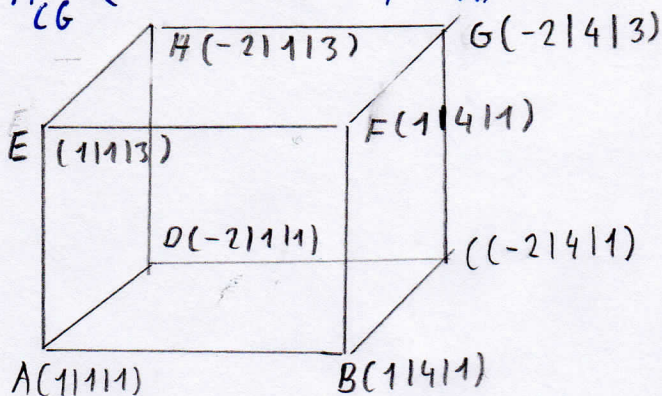 CG
H(-2|1|3)
G(-2|4|3)
E (1|1|3)
F(1|4|1)
D(-2|1|1)
C(-2|4|1)
A(1|1|1)
B(1|4|1)